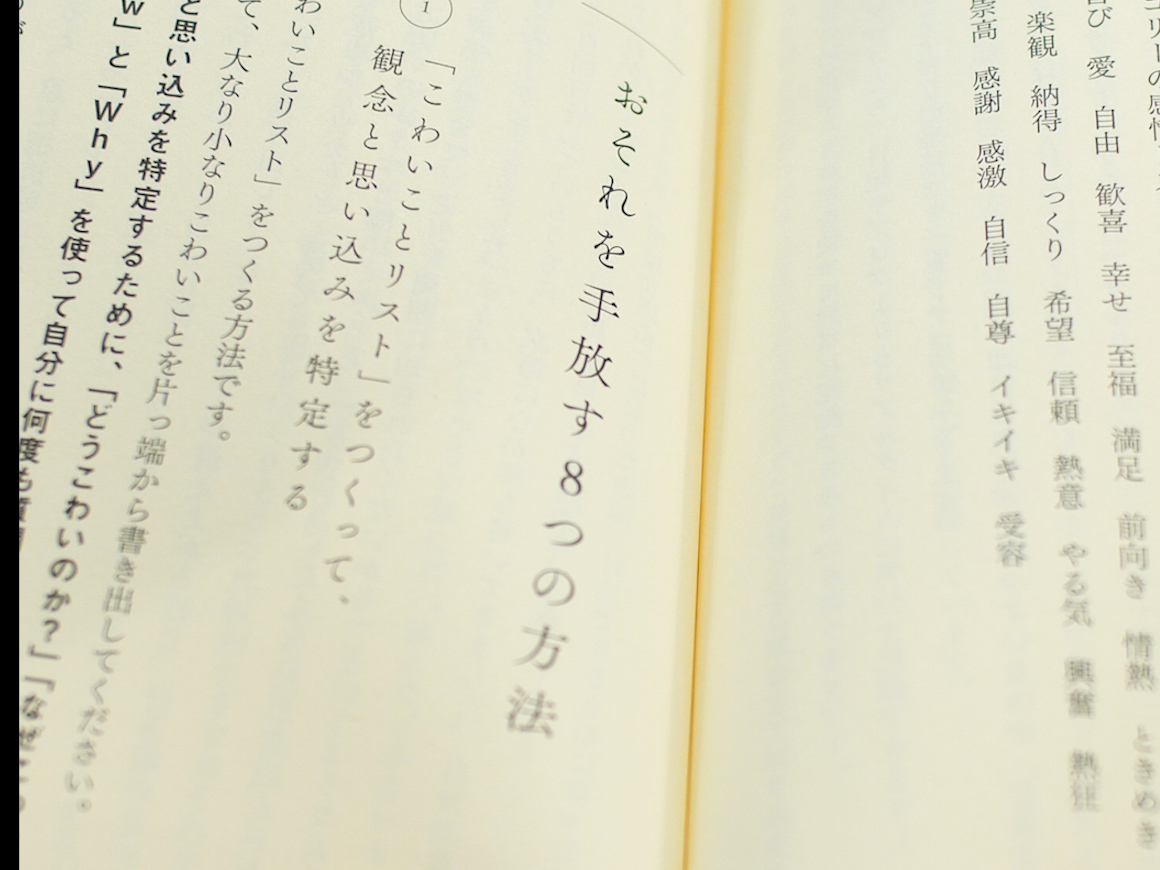 喜び 愛 自由 歓喜 幸せ 至福 満足 前向き 情熱 ときめき
楽観 納得 しっくり 希望 信頼 熱意 やる気 興奮 熱狂
崇高 感謝 感激 自信 自尊 イキイキ 受容
おそれを手放す8つの方法
1
「こわいことリスト」をつくって、
観念と思い込みを特定する
わいことリスト」をつくる方法です。
て、大なり小なりこわいことを片っ端から書き出してください。
と思い込みを特定するために、「どうこわいのか?」「なぜこ
w」と「Why」を使って自分に何度も質問